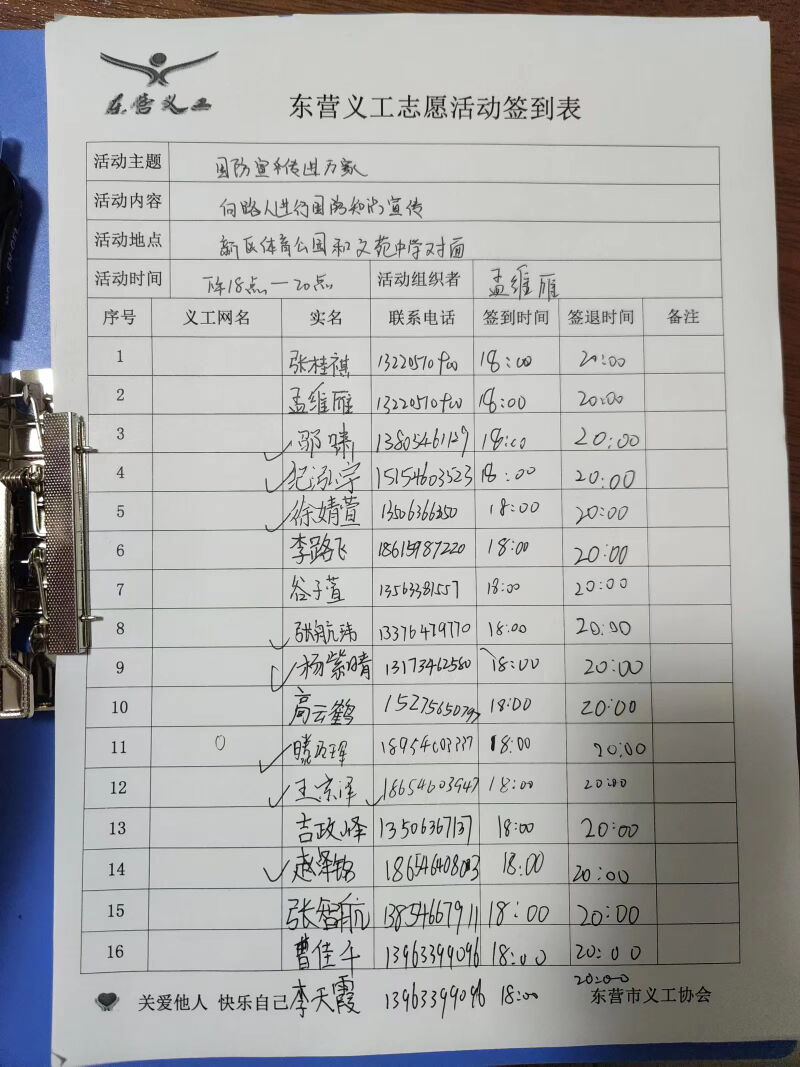 东营义工
东营义工志愿活动签到表
活动主题 国防宣传进万家
活动内容 向路人进行国防知识宣传
活动地点 新区体育公园和文苑中学对面
活动时间 下午18点—20点 活动组织者 孟维雁
序号 义工网名 实名 联系电话 签到时间 签退时间 备注
1 张桂祺 18:00 20:00
2 孟维雁 18:00 20:00
3 邬啸 13805461127 18:00 20:00
4 纪泓宇 15154603523 18:00 20:00
5 徐婧萱 18:00 20:00
6 李路飞 18615987220 18:00 20:00
7 谷子萱 13563381557 18:00 20:00
8 张航玮 13376479770 18:00 20:00
9 杨紫晴 13173462580 18:00 20:00
10 高云鹤 18:00 20:00
11 0 18:00 20:00
12 王宗泽 18654603947 18:00 20:00
13 吉政峰 13506367137 18:00 20:00
14 赵泽铭 18:00 20:00
15 张智航 13854667911 18:00 20:00
16 曹佳千 13963399096 18:00 20:00
关爱他人 快乐自己 李天霞 13963399096 18:00 20:00 东营市义工协会